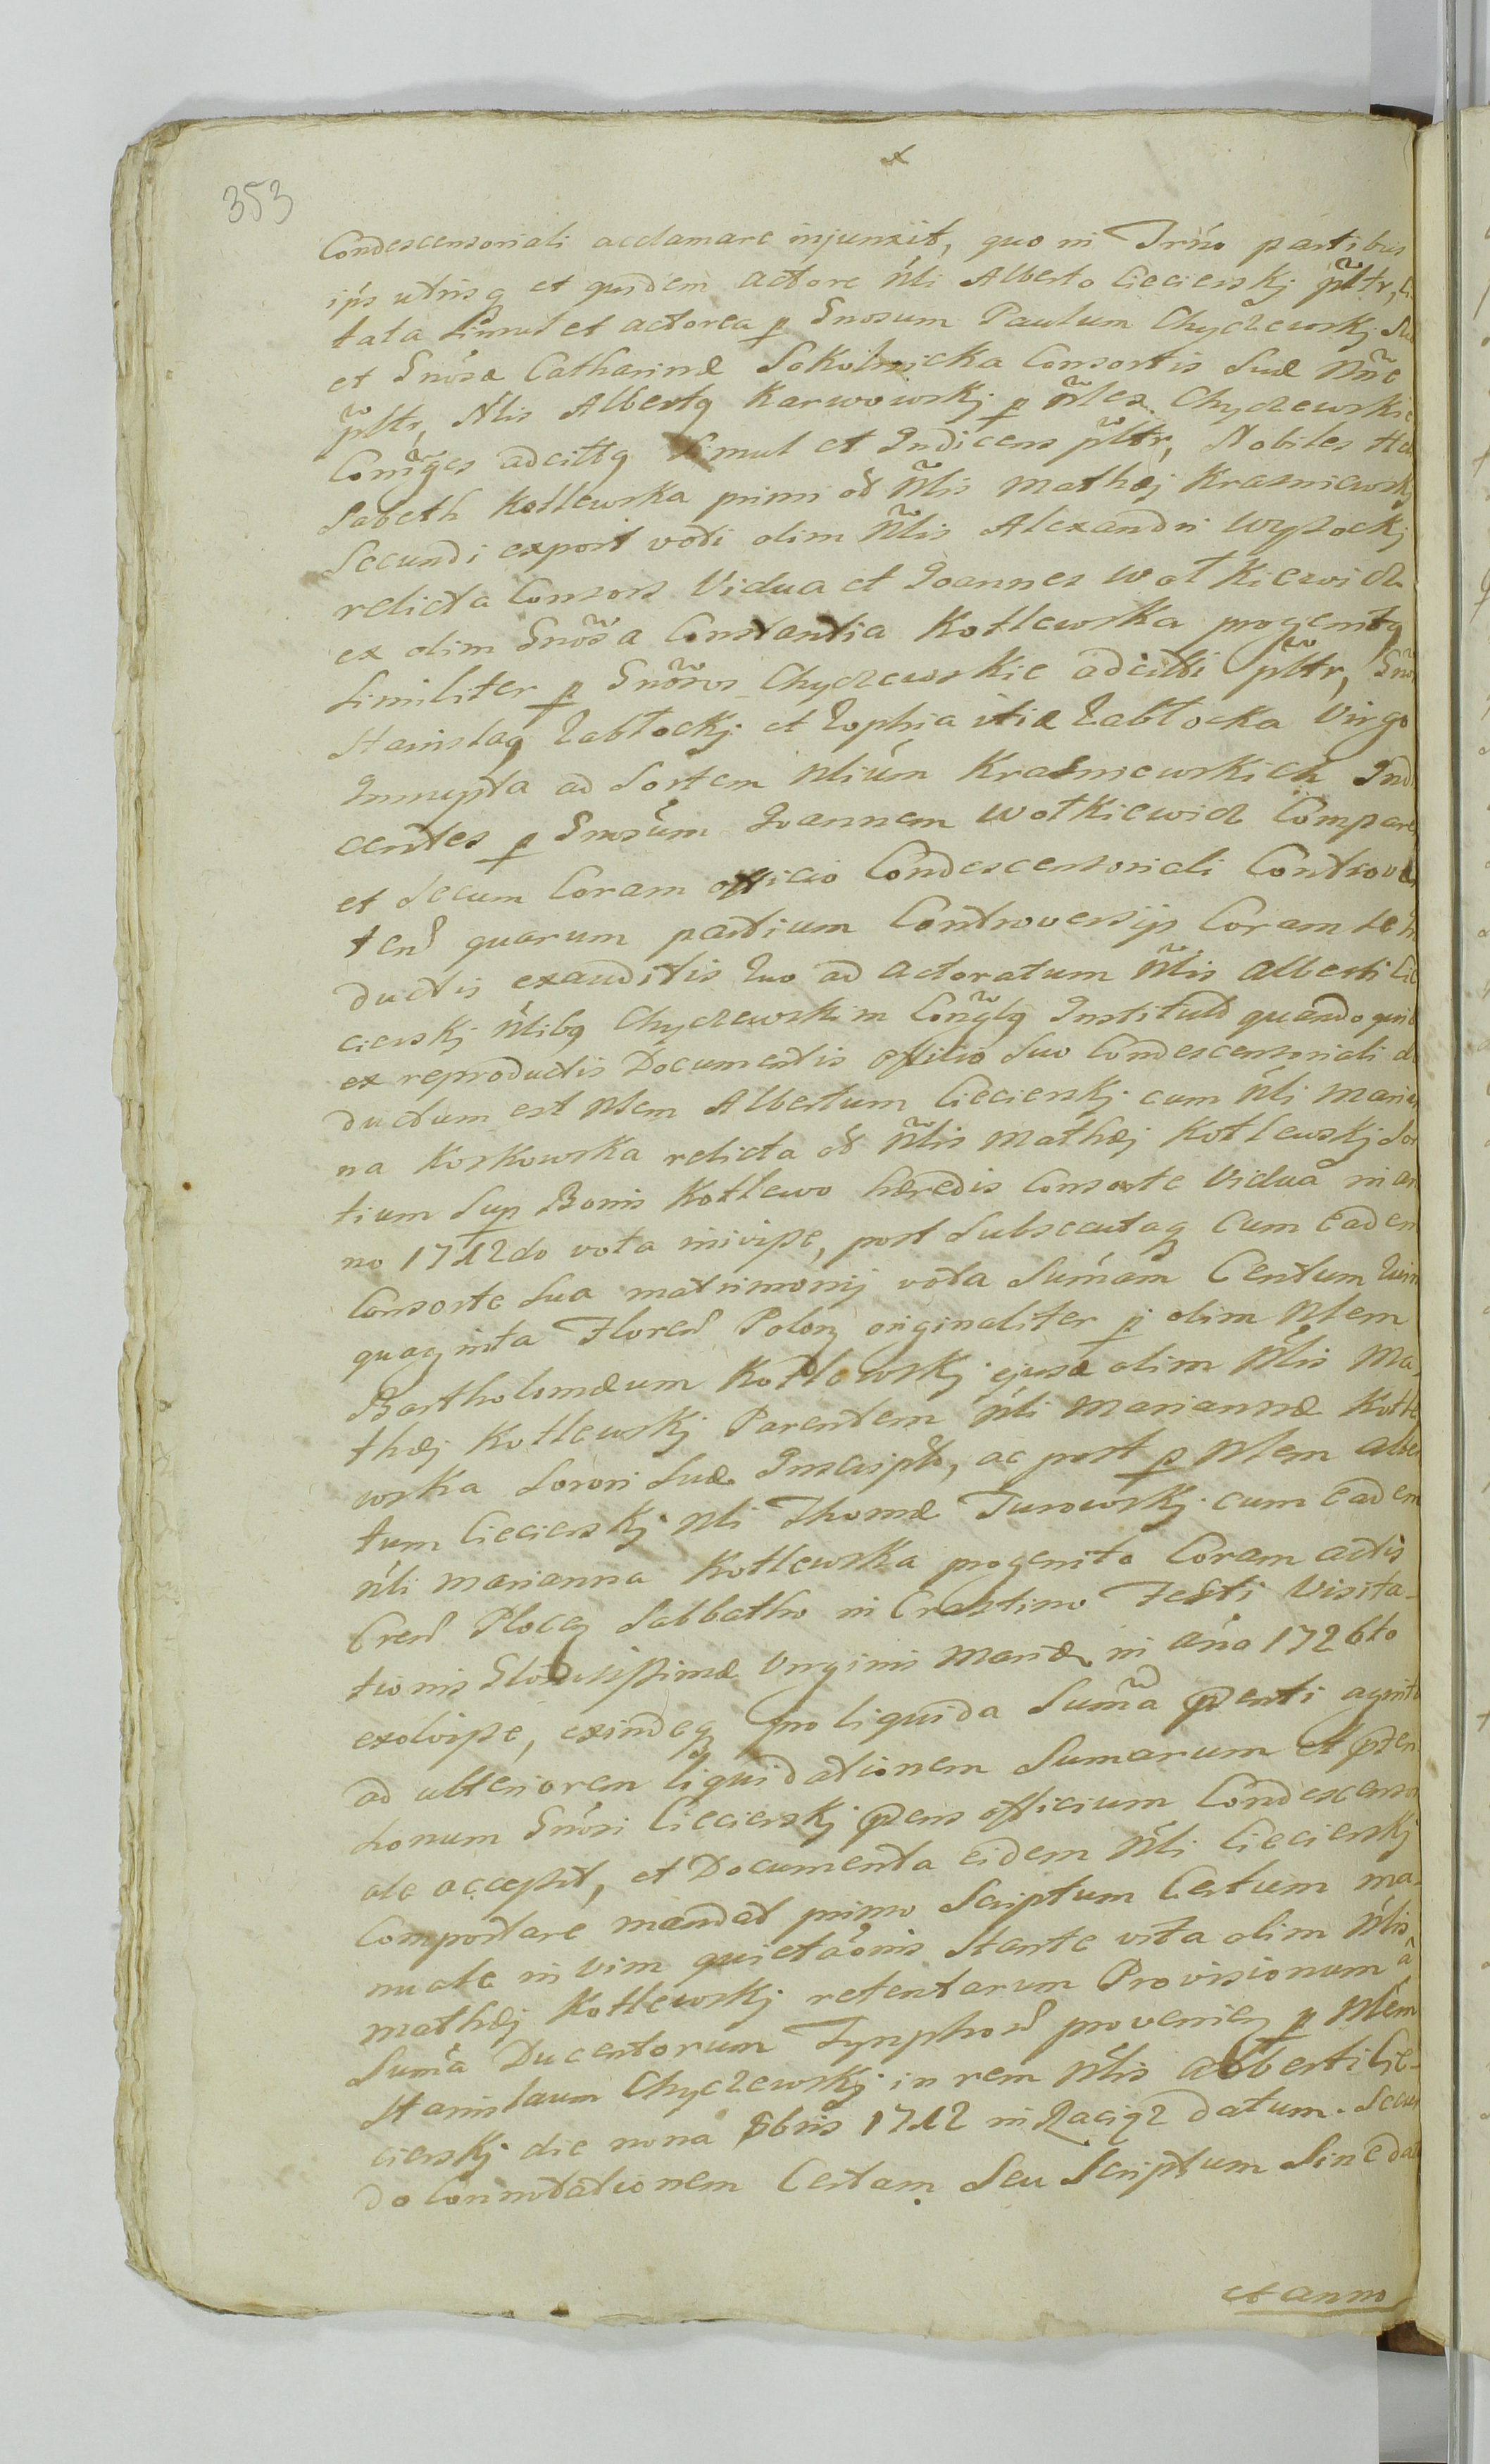 353
Condescensoriali acclamare injunxit, quo in Trno partibus
ips utrisq et quidem actore Nli Alberto Ciecierskj pltr, Ci
tata simul et actorea p Gnosum Paulum Chyczewskj Su
et Gnosa Catharinæ Sokolnicka Consortis Suæ Nne
pltr, Nlis Albertq Karwowskj p Nles Chyczewskie
Coniges adcittq Simul et Indicens pltr, Nobiles Heli
sabeth Kotlewska primi od Nlis Mathæj Krasniewskj
Secundi expost voti olim Nlis Alexandri Wysockj
relicta Consors Vidua et Joannes Wotkiewicz
ex olim Gnosa Constantia Kotlewska progenitq
Similiter p Gnoros Chyczewskie adcitti pltr, Gno
Stanislaq Zabłockj et Zophia itiæ Zabłocka Virgo
Innupta ad Sortem Nlium Krasniewskich Indi
centes p Gnosum Joannem Wotkiewicz Compare
et Secum Coram officio Condescensoriali Controver
ten quarum partium Controversijs Coram se in
ductis exauditis Quo ad actoratum Nlis Alberti Cie
cierskj Nlibq Chyczewskim Conglq Institutd quandoquid
ex reproductis Documentis officio Suo Condescensoriali de
ductum est Nlem Albertum Ciecierskj cum Nli Marian
na Koskowska relicta od Nlis Mathæj Kotlewskj Sor
tium Sup Bonis Kotlewo hæredis Consorte Vidua in an
no 1712do vota inivisse, post Subsecutaq Cum eadem
Consorte Sua matrimonij vota Sumam Centum Quin
quaginta Floren Polon originaliter p olim Nlem
Bartholomæum Kotlowskj ejusd olim Nlis Ma,
thæj Kotlewskj Parentem Nli Mariannæ Kotle
wska Sorori Suæ Inscript, ac post p Nlem Alber
tum Ciecierskj Nli Thomæ Turowskj cum eadem
Nli Marianna Kotlewska progenito Coram actis
Cren Plocen Sabbatho in Crastino Festi Visita-
tionis Gloriosissimæ Virginis Mariæ in ano 1726to
exolvisse, exindeq pro liquida Suma pzenti agnit
ad ulteriorem liquidationem Sumarum et pzen
sionum Gnosi Ciecierskj pzens officium Condescenso
ale accessit, et Documenta eidem Nli Ciecierskj
Comportare mandat primo Scriptum Certum ma-
nuale in vim quietaonis Stante vita olim Nlis
Mathæj Kotlewskj retentarum Provisionum a
Suma Ducentorum Tynphon provenien p Nlem
Stanislaum Chyczewskj in rem Nlis Alberti Cie-
cierskj die nona 8bris 1712 in Raciąz datum. Secun
do Connotationem Certam Seu Scriptum Sine dat
et anno